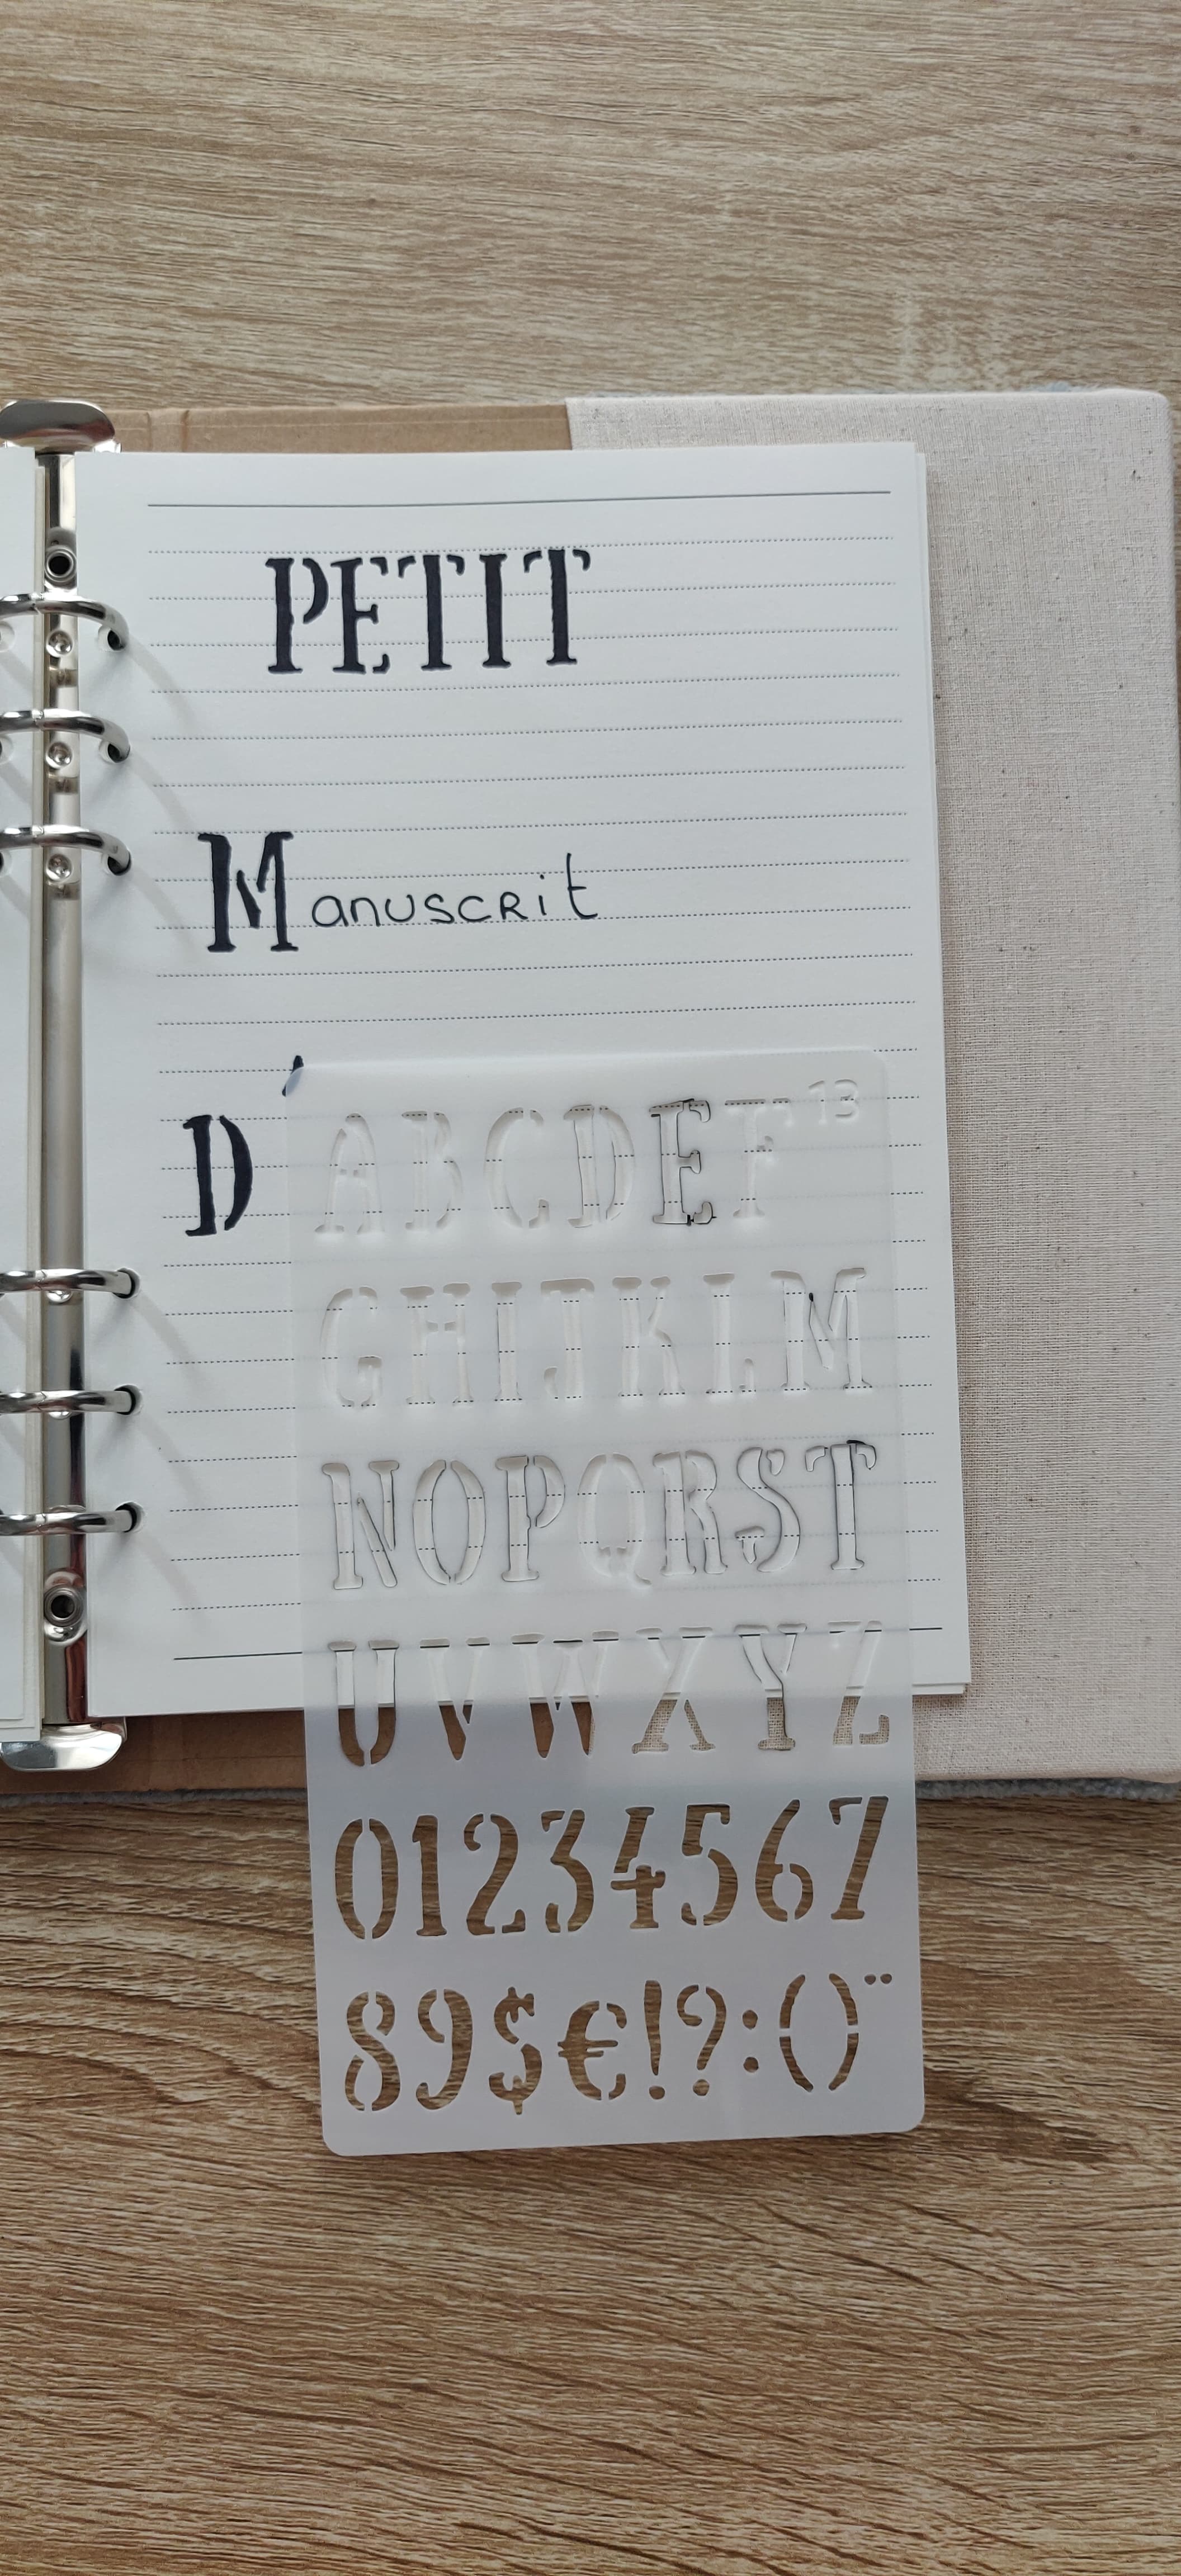 PETIT
Manuscrit
D'
ABCDEF 13
GHIJKLM
NOPQRST
UVWXYZ
01234567
89$€!?:()¨